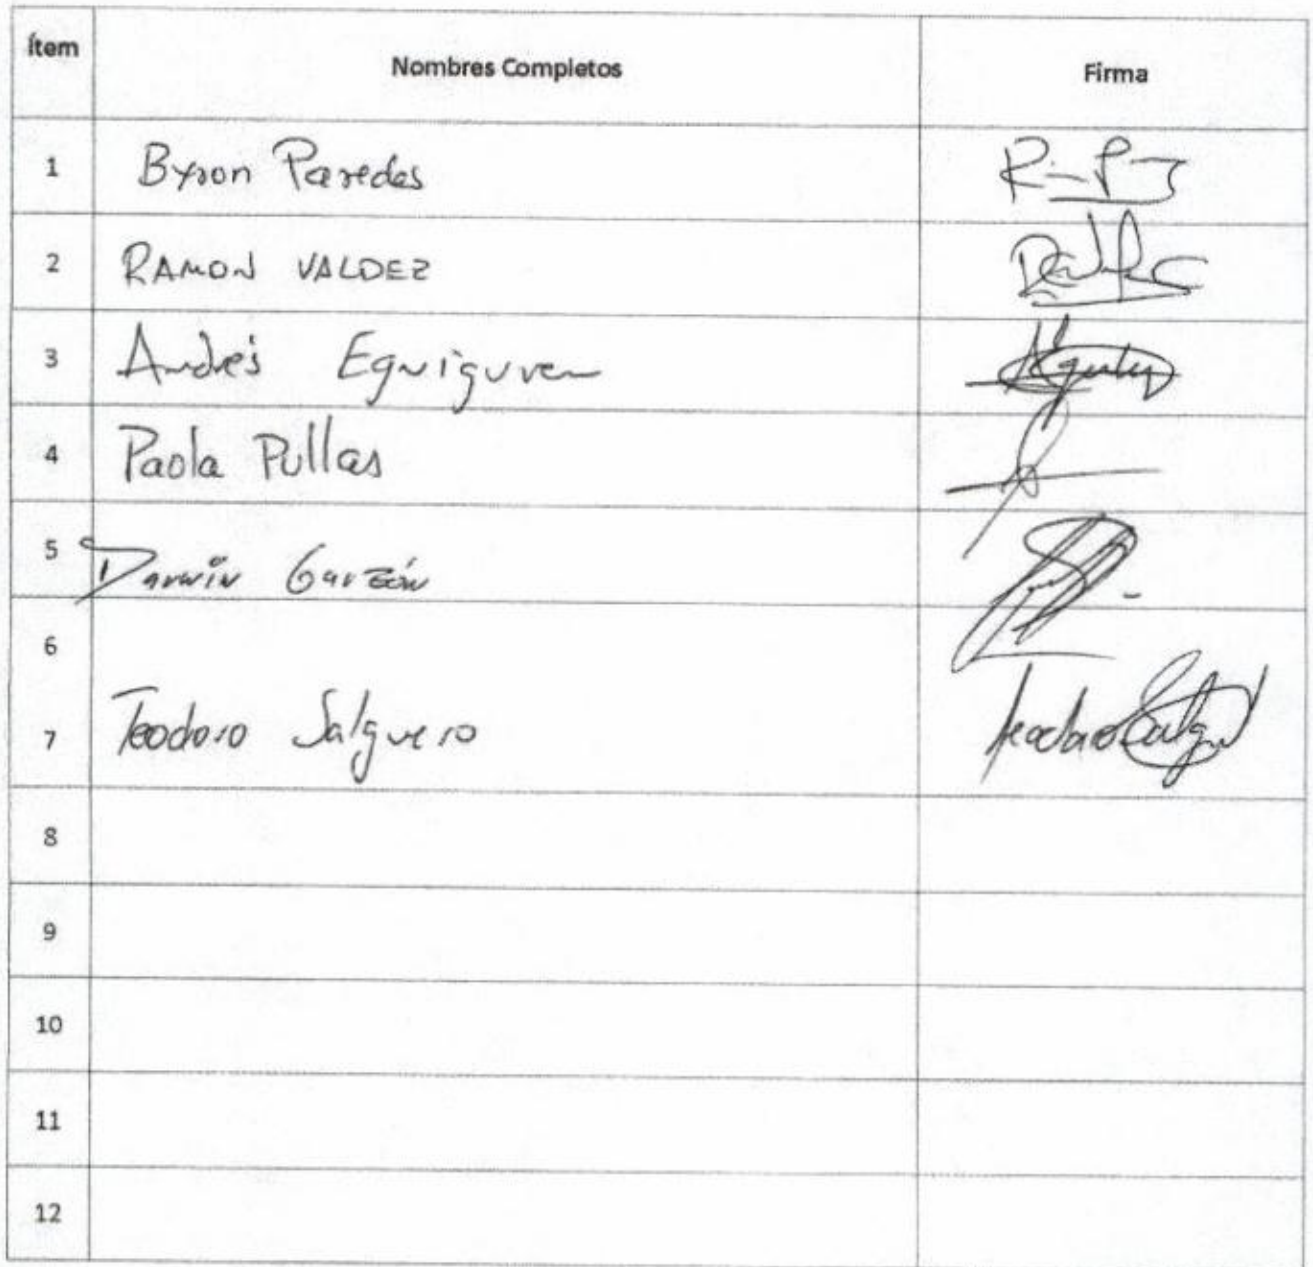 Ítem Nombres Completos Firma
1 Byron Paredes
2 RAMON VALDEZ
3 Andrés Eguiguren
4 Paola Pullas
5 Darwin Garzón
6
7 Teodoro Salguero Teodoro Salg
8
9
10
11
12